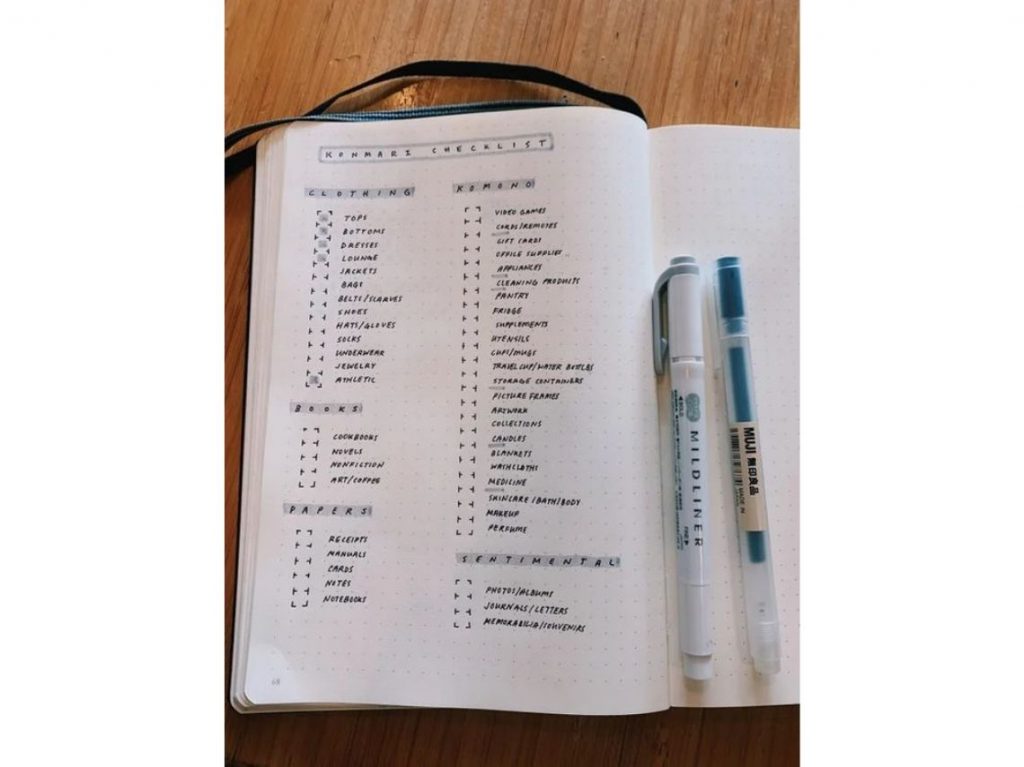 KONMARI CHECKLIST
CLOTHING
TOPS
BOTTOMS
DRESSES
LOUNGE
JACKETS
BAGS
BELTS/SCARVES
SHOES
HATS/GLOVES
SOCKS
UNDERWEAR
JEWELRY
ATHLETIC
BOOKS
COOKBOOKS
NOVELS
NONFICTION
ART/COFFEE
PAPERS
RECEIPTS
MANUALS
CARDS
NOTES
NOTEBOOKS
68
KOMONO
VIDEO GAMES
CORDS/REMOTES
GIFT CARDS
OFFICE SUPPLIES
APPLIANCES
CLEANING PRODUCTS
PANTRY
FRIDGE
SUPPLEMENTS
UTENSILS
CUPS/MUGS
TRAVEL CUP/WATER BOTTLES
STORAGE CONTAINERS
PICTURE FRAMES
ARTWORK
COLLECTIONS
CANDLES
BLANKETS
WASHCLOTHS
MEDICINE
SKINCARE/BATH/BODY
MAKEUP
PERFUME
SENTIMENTAL
PHOTOS/ALBUMS
JOURNALS/LETTERS
MEMORABILIA/SOUVENIRS
MILDLINER
MUJI 無印良品
MADE IN